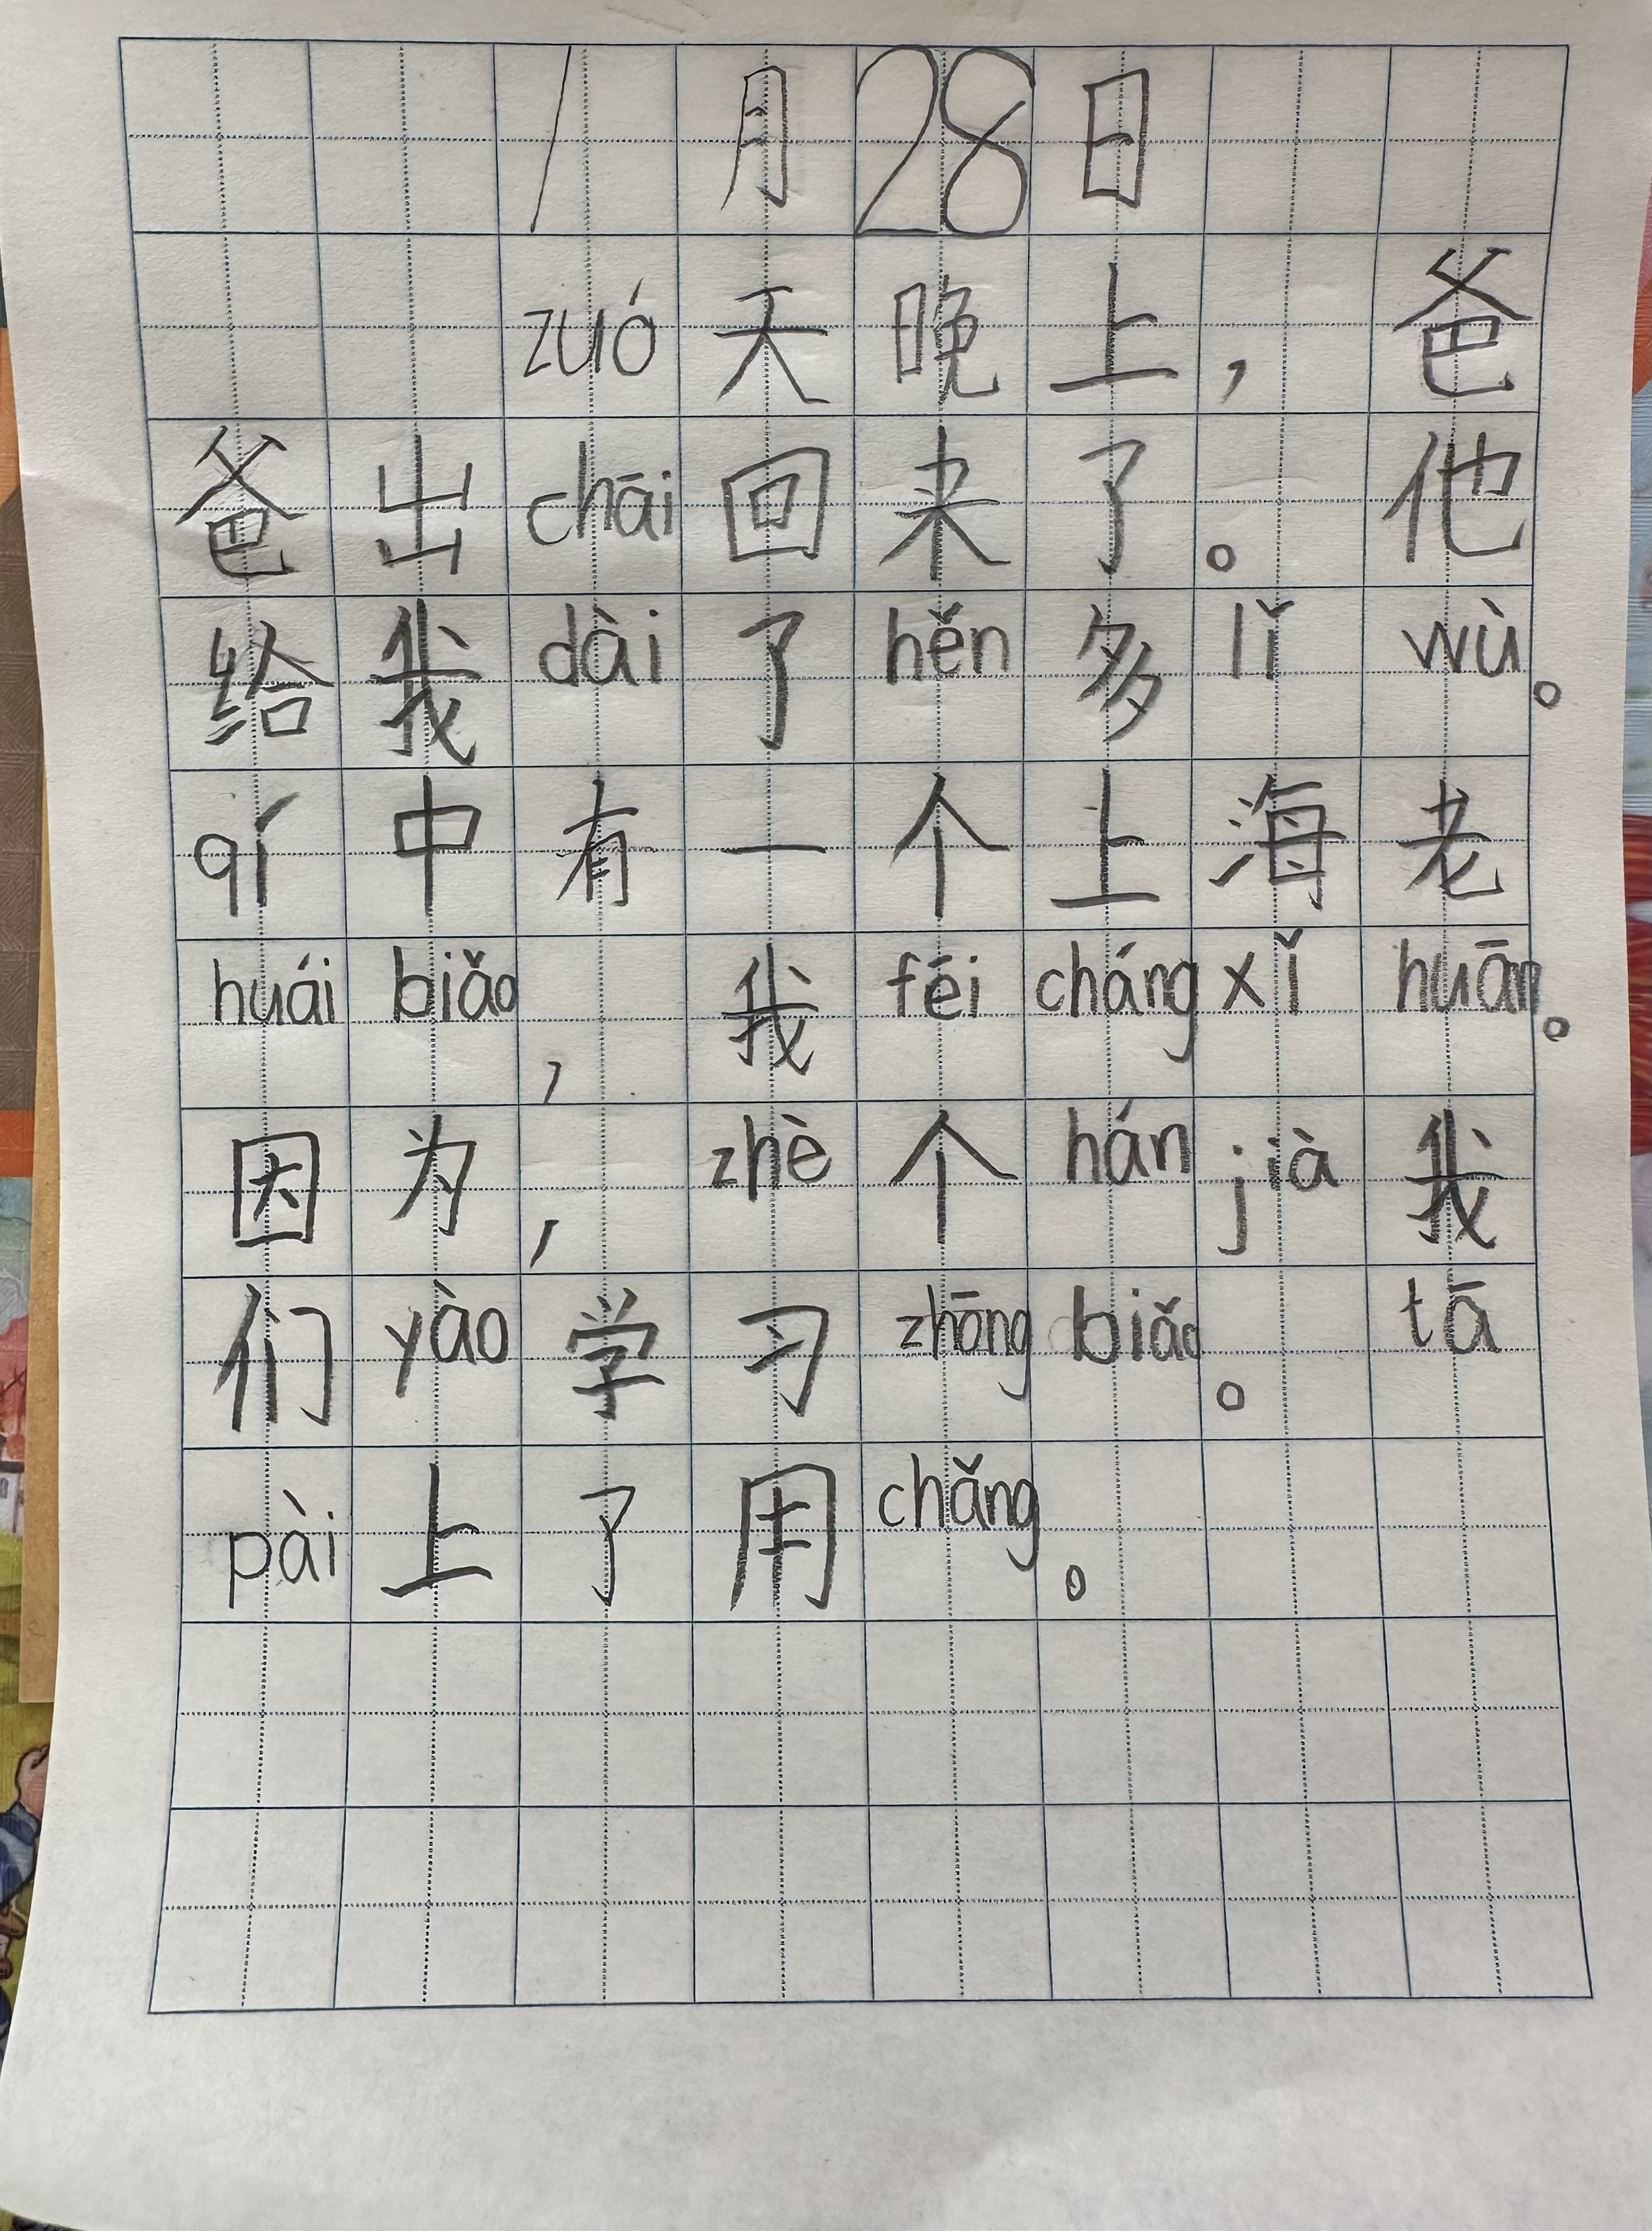 1月28日
zuó天晚上，爸
爸出chāi回来了。他
给我dài了hěn多lǐ wù。
qí中有一个上海老
huái biǎo，我fēi cháng xǐ huān。
因为，zhè个hán jià我
们yào学习zhōng biǎo。tā
pài上了用chǎng。